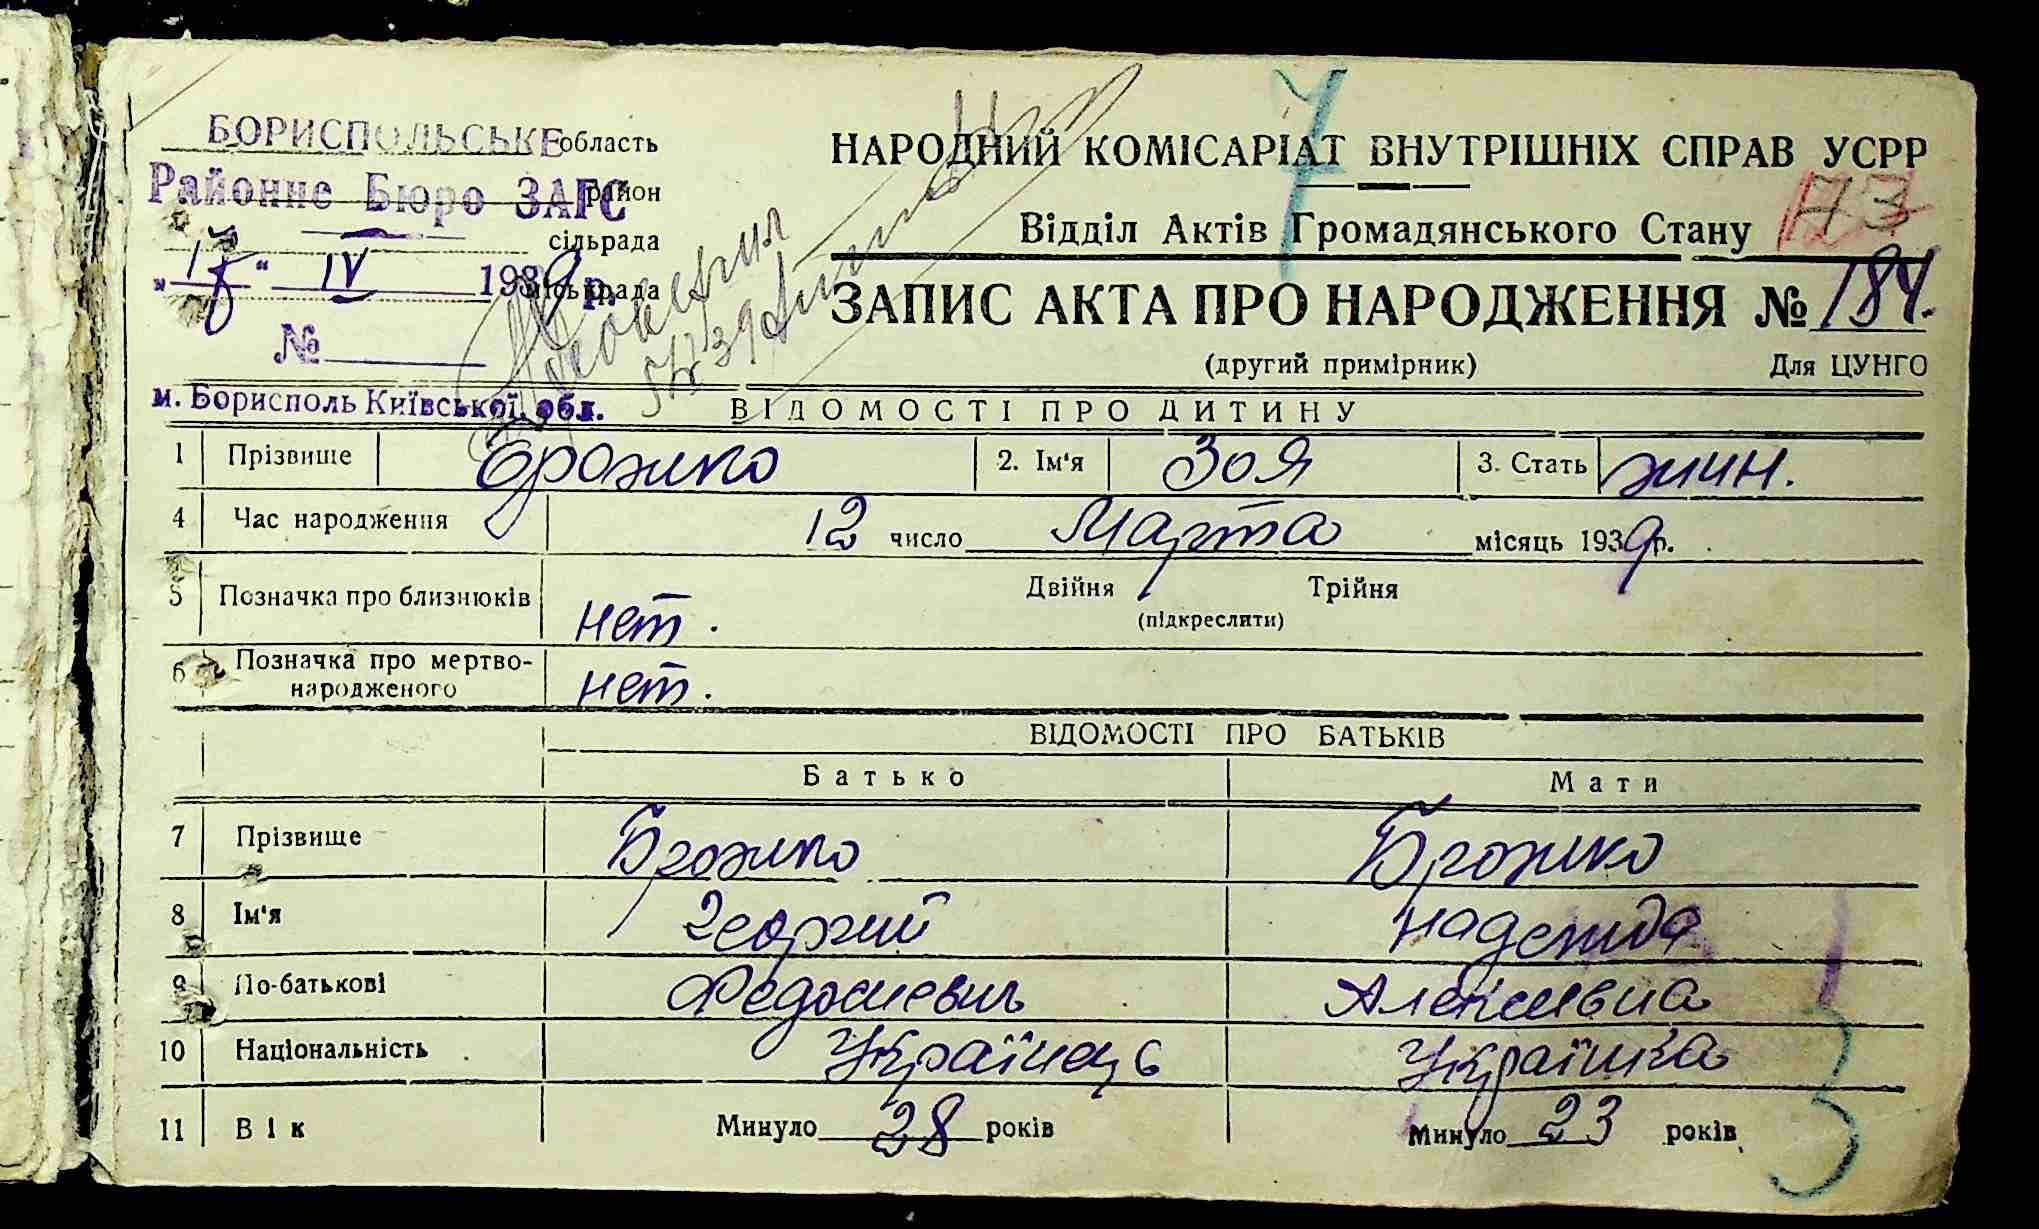 БОРИСПОЛЬСЬКЕ область
Районне Бюро ЗАГС район
сільрада
„17“ IV 1939 р. міськрада
№
м. Борисполь Київської обл.
7
НАРОДНИЙ КОМІСАРІАТ ВНУТРІШНІХ СПРАВ УСРР
173
Відділ Актів Громадянського Стану
ЗАПИС АКТА ПРО НАРОДЖЕННЯ № 184.
(другий примірник) Для ЦУНГО
ВІДОМОСТІ ПРО ДИТИНУ
1 Прізвище Брожко 2. Ім'я Зоя 3. Стать жин.
4 Час народження 12 число Марта місяць 1939р.
5 Позначка про близнюків нет. Двійня Трійня
(підкреслити)
6 Позначка про мертво-
народженого нет.
ВІДОМОСТІ ПРО БАТЬКІВ
Батько Мати
7 Прізвище Брожко Брожко
8 Ім'я Георгий Надежда
9 По-батькові Федосиевич Алексивна
10 Національність Українець Українка
11 Вік Минуло 28 років Минуло 23 років